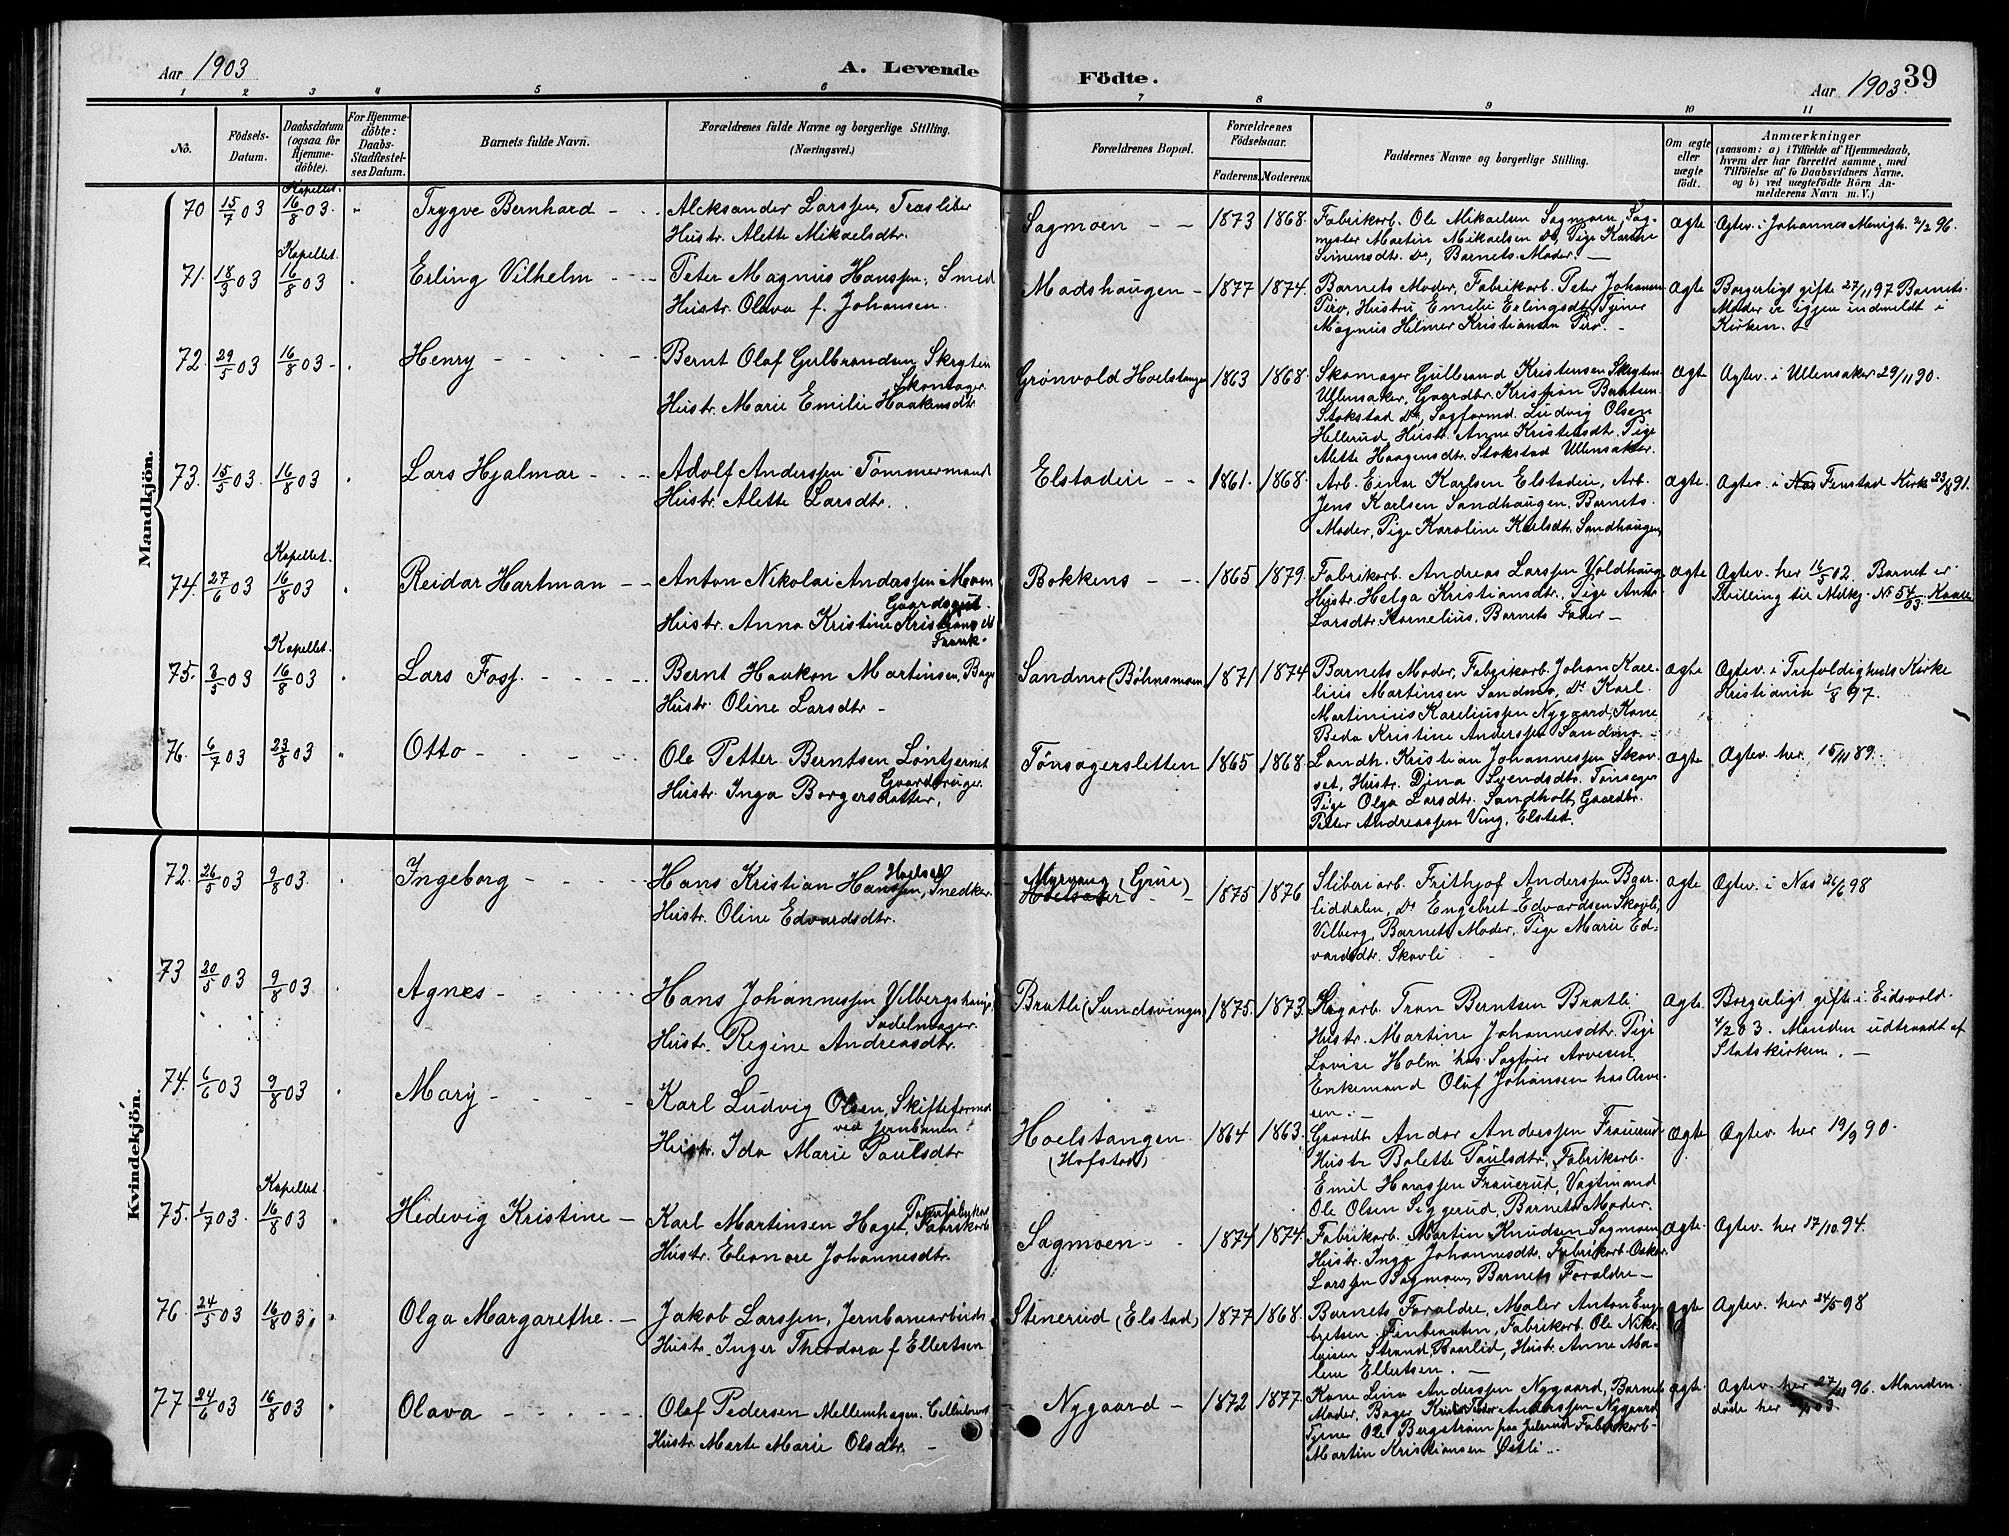 Aar 1903
A. Levende
Födte.
Aar 1903.
39
1 2 3 4 5 6 7 8 9 10 11
No.
Födsels-Datum.
Daabsdatum (ogsaa for Hjemmedöbte).
For Hjemmedöbte: Daabs-Stadfæstelses Datum.
Barnets fulde Navn.
Forældrenes fulde Navne og borgerlige Stilling.
(Næringsvei.)
Forældrenes Bopæl.
Forældrenes Födselsaar.
Faderens. Moderens.
Faddernes Navne og borgerlige Stilling.
Om ægte eller uægte födt.
Anmærkninger
(saasom: a) i Tilfælde af Hjemmedaab,
hvem der har forrettet samme, med
Tilföielse af to Daabsvidners Navne.
og b) ved uægtefödte Börn Anmelderens Navn m. V.)
Mandkjön.
Kapellet.
70 15/7 03 16/8 03. Trygve Bernhard
Aleksander Larssen, Træsliber
Hustr. Alette Mikaelsdtr.
Sagmoen 1873 1868
Fabrikarb. Ole Mikaelsen Sagmoen, Sag-
mester Martin Mikaelsen Do, Pige Karine
Simensdt. Do, Barnets Moder.
ægte
Ægtev. i Johannes Menigh. 2/2 96.
Kapellet.
71. 18/3 03 16/8 03 Erling Vilhelm
Peter Magnus Hanssen, Smed
Hustr. Olava f. Johansen.
Madshaugen 1877 1874.
Barnets Moder, Fabrikarb. Peter Johansen
Piro, Hustru Emelie Erlingsdtr, Tjener
Magnus Hilmer Kristiansen Piro.
ægte
Borgerligt gifte 27/11 97 Barnets
Moder er igjen indmeldt i
Kirken.
72. 29/5 03 16/8 03 Henry
Bernt Olaf Gulbrandsen Skryten
Skomager
Hustr. Marie Emilie Haakensdtr
Grønvold Hoelstangen 1863 1868.
Skomager Gulbrand Kristensen Skryten
Ullensaker, Gaardbr. Kristian Berntsen
Stokstad Do, Sagformd. Ludvig Olsen
Hellerud, Hustr. Anne Kristensdtr. Pige
Alette Haagensdtr. Stokstad Ullensaker.
ægte
Ægtev. i Ullensaker 29/11 90.
73. 15/5 03. 16/8 03 Lars Hjalmar
Adolf Anderssen Tømmermand
Hustr. Alette Larsdtr.
Elstadeie 1861. 1868.
Arb. Einar Karlsen Elstadeie, Arb.
Jens Karlsen Sandhaugen, Barnets
Moder, Pige Karoline Karlsdtr. Sandhaugen
ægte.
Ægtev. i Fenstad Kirke 23/8 91.
Kapellet
74. 27/6 03 16/8 03 Reidar Hartman
Anton Nikolai Anderssen Moen
Gaardsgut.
Hustr. Anna Kristine Kristiansdt
Frank.
Bokkens 1865 1879.
Fabrikarb. Andreas Larssen Voldhaug
Hustr. Helga Kristiansdtr. Pige
Larsdtr. Kornelius, Barnets Fader
ægte
Ægtev. her 16/5 02. Barnet er
Tvilling til Mdkj. No 54/03.
Kapellet.
75. 3/5 03 16/8 03 Lars Foss.
Bernt Haakon Martinsen, Bager
Hustr. Oline Larsdtr
Sandmo (Bøhnsmoen) 1871 1874
Barnets Moder, Fabrikarb. Johan Kare-
lius Martinsen Sandmo, Do Karl
Martinius Kareliussen Nygaard, Kone
Beda Kristine Anderssen Sandmo.
ægte
Ægtev. i Trefoldigheds Kirke
Kristiania 1/8 97.
76. 6/7 03 23/8 03 Otto
Ole Petter Berntsen Løntjernet
Gaardbruger
Hustr. Inga Borgersdatter,
Tønsagersletten 1865 1868
Landh. Kristian Johannessen Skov-
set, Hustr. Dina Svendsdtr. Tønsager
Pige Olga Larsdtr. Sandholt, Gaardbr.
Peter Andreassen Ving, Elstad.
ægte
Ægtev. her 15/11 89.
Kvindekjön.
72. 26/5 03 9/8 03. Ingeborg
Hans Kristian Hanssen, Snedker
Hustr. Oline Edvardsdtr.
Myrvang (Grue)
Hoelsaker
1875 1876
Sliberiarb. Frithjof Anderssen Baar-
liddalen, Do Engebret Edvardsen Skovli,
Vilberg, Barnets Moder, Pige Marie Ed-
vardsdtr. Skovli
ægte
Ægtev. i Nes 26/6 98
73 20/5 03 9/8 03 Agnes
Hans Johannessen Vilbergshaug.
Sadelmager.
Hustr. Regine Andreasdtr.
Bratli (Sundsvingen) 1875. 1873.
Sagarb. Tron Berntsen Bratli
Hustr. Martine Johannesdtr. Pige
Lovise Holm hos Sageier Arvesen,
Enkemand Oluf Johansen hos Arve-
sen.
Ægte
Borgerligt gifte i Eidsvold
4/2 03. Manden udtraadt af
Statskirken.
74. 6/6 03 9/8 03 Mary
Karl Ludvig Olsen, Skifteformd
ved Jernbanen.
Hustr. Ida Marie Paulsdtr
Hoelstangen
(Hofstad)
1864 1863.
Gaardb. Andor Anderssen Frauerud
Hustr Bolette Paulsdtr, Fabrikarb.
Emil Hanssen Frauerud, Vagtmand
Ole Olsen Siggerud, Barnets Moder.
ægte
Ægtev. her 19/9 90.
Kapellet
75. 1/7 03. 16/8 03 Hedevig Kristine
Karl Martinsen Haget, Fabrikarb
Hustr. Eleonore Johannesdtr.
Sagmoen 1874 1874.
Fabrikarb. Martin Knudsen Sagmoen
Hustr. Inga Johannesdtr. Fabrikarb. Oskar
Larssen Sagmoen, Barnets Forældre
ægte.
Ægtev. her 17/10 94.
76. 24/5 03 16/8 03. Olga Margarethe.
Jakob Larssen, Jernbanearbeider
Hustr. Inger Theodora f Ellertsen
Stenerud (Elstad) 1877 1868.
Barnets Forældre, Maler Anton Eng-
bretsen, Finbraaten, Fabrikarb. Ole Niko-
laisen Strand, Baarlid, Hustr. Anne Ma-
lene Ellertsen.
ægte
Ægtev. her 24/5 98
77 24/6 03 16/8 03 Olava
Olaf Pedersen Mellemhagen.
Hustr. Marte Marie Olsdtr.
Nygaard 1872 1877
Kone Lina Anderssen Nygaard, Barnets
Moder, Bager Anderssen Nygaard
Tjener Ole Bergstrøm paa Julsrud, Fabrikarb.
Martin Kristiansen Østli
ægte.
Ægtev. her 27/11 96. Manden
døde her